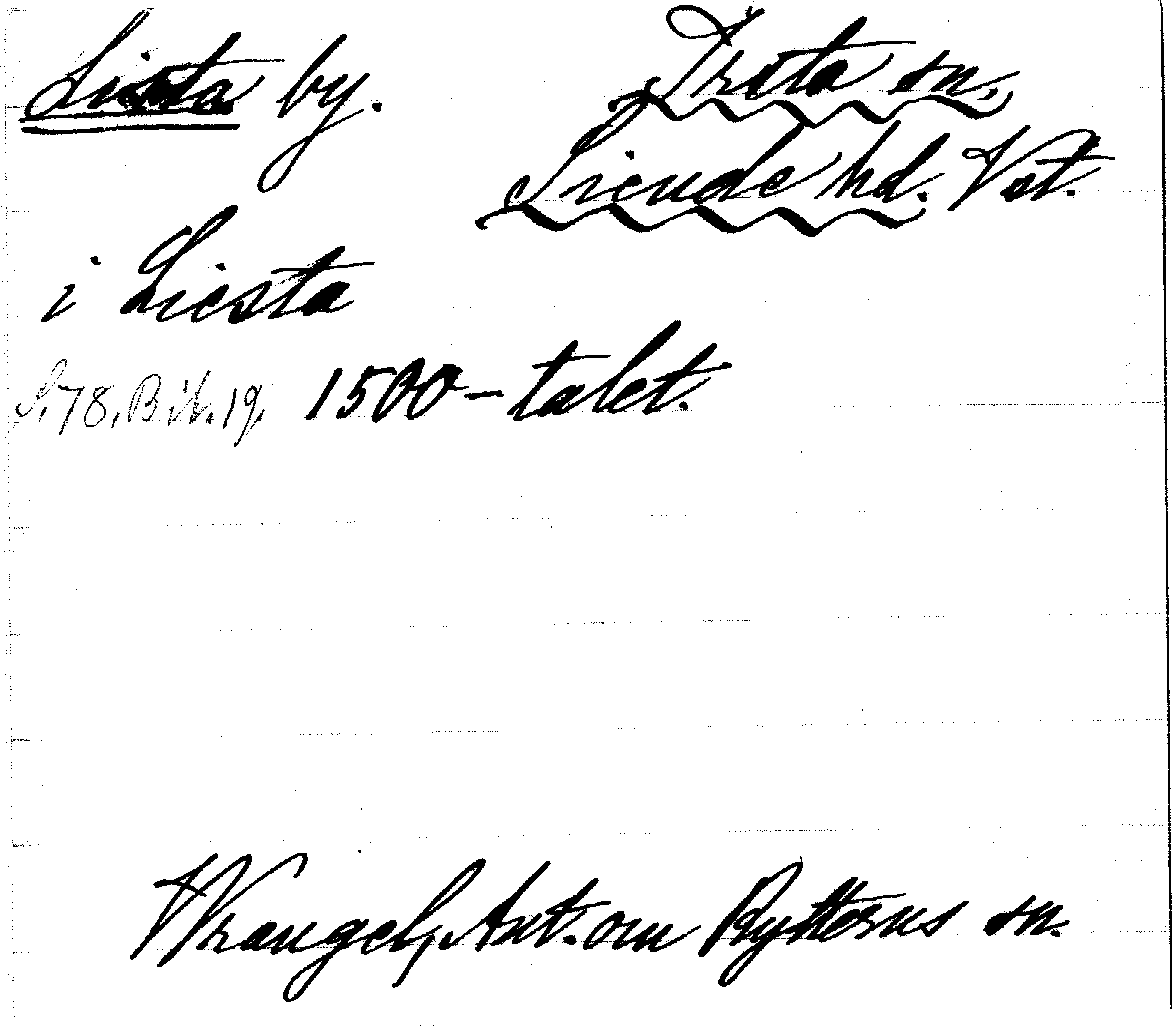 Lista by.
Irsta sn.
Siende hd. Vst.
i Liesta
S. 78. Bih. 19. 1500-talet.
Wrangel, Ant. om Rytterns sn.